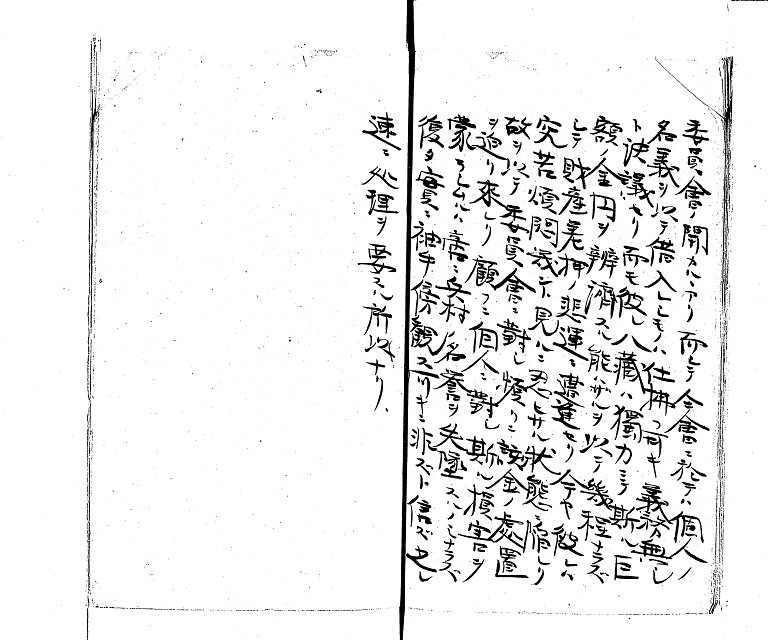 委員會ノ開カルヽアリ而シテ仝會ニ於テハ個人ノ
名義ヲ以テ借入レシモノハ仕拂フ可キ義務無シ
ト決議セリ而モ彼レ八藏ハ獨力ニテ斯ル巨
額ノ金円ヲ辨濟スル能ハザルヲ以テ幾程ナラズ
シテ財産差押ノ悲運ニ驀進セリ今ヤ彼レハ
究苦煩悶誠ニ見ルニ忍ヒサル状態ニ陥レリ
故ヲ以テ委員會ニ對シ煩リニ該金ノ處置
ヲ迫リ來レリ顧フニ個人ニ對シ斯ル損害ヲ
蒙ラシムルハ啻ニ安村ノ名誉ヲ失墜スルノミナラズ
復タ實ニ袖手傍觀スベキニ非ズト信ズ之レ
速ニ処理ヲ要スル所以ナリ、